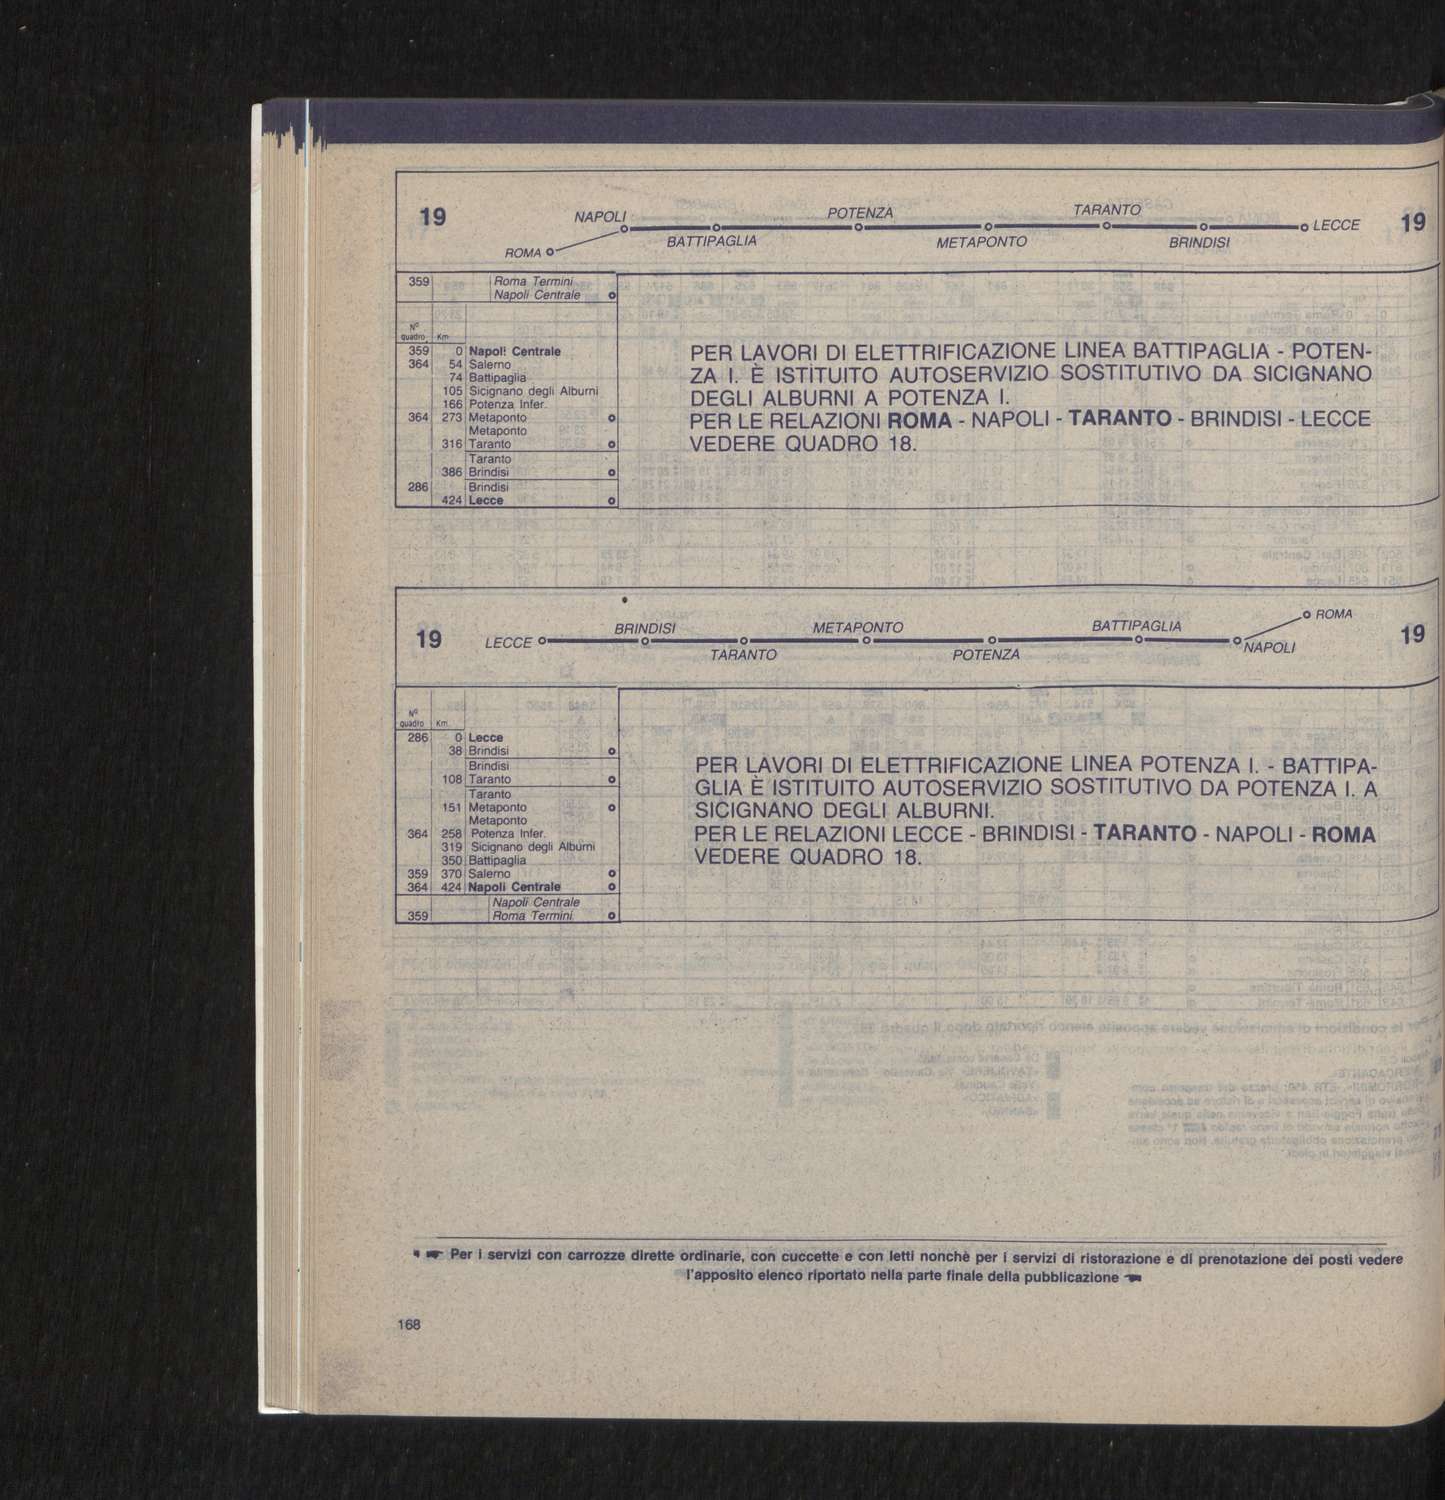 19 NAPOLI POTENZA TARANTO LECCE 19
ROMA BATTIPAGLIA METAPONTO BRINDISI
359 Roma Termini
Napoli Centrale
N° quadro Km.
359 0 Napoli Centrale
364 54 Salerno
74 Battipaglia
105 Sicignano degli Alburni
166 Potenza Infer.
364 273 Metaponto
Metaponto
316 Taranto
Taranto
386 Brindisi
286 Brindisi
424 Lecce
PER LAVORI DI ELETTRIFICAZIONE LINEA BATTIPAGLIA - POTEN-
ZA I. È ISTITUITO AUTOSERVIZIO SOSTITUTIVO DA SICIGNANO
DEGLI ALBURNI A POTENZA I.
PER LE RELAZIONI ROMA - NAPOLI - TARANTO - BRINDISI - LECCE
VEDERE QUADRO 18.
19 LECCE BRINDISI METAPONTO BATTIPAGLIA ROMA 19
TARANTO POTENZA NAPOLI
N° quadro Km.
286 0 Lecce
38 Brindisi
Brindisi
108 Taranto
Taranto
151 Metaponto
Metaponto
364 258 Potenza Infer.
319 Sicignano degli Alburni
350 Battipaglia
359 370 Salerno
364 424 Napoli Centrale
Napoli Centrale
359 Roma Termini
PER LAVORI DI ELETTRIFICAZIONE LINEA POTENZA I. - BATTIPA-
GLIA È ISTITUITO AUTOSERVIZIO SOSTITUTIVO DA POTENZA I. A
SICIGNANO DEGLI ALBURNI.
PER LE RELAZIONI LECCE - BRINDISI - TARANTO - NAPOLI - ROMA
VEDERE QUADRO 18.
Per i servizi con carrozze dirette ordinarie, con cuccette e con letti nonchè per i servizi di ristorazione e di prenotazione dei posti vedere
l'apposito elenco riportato nella parte finale della pubblicazione
168